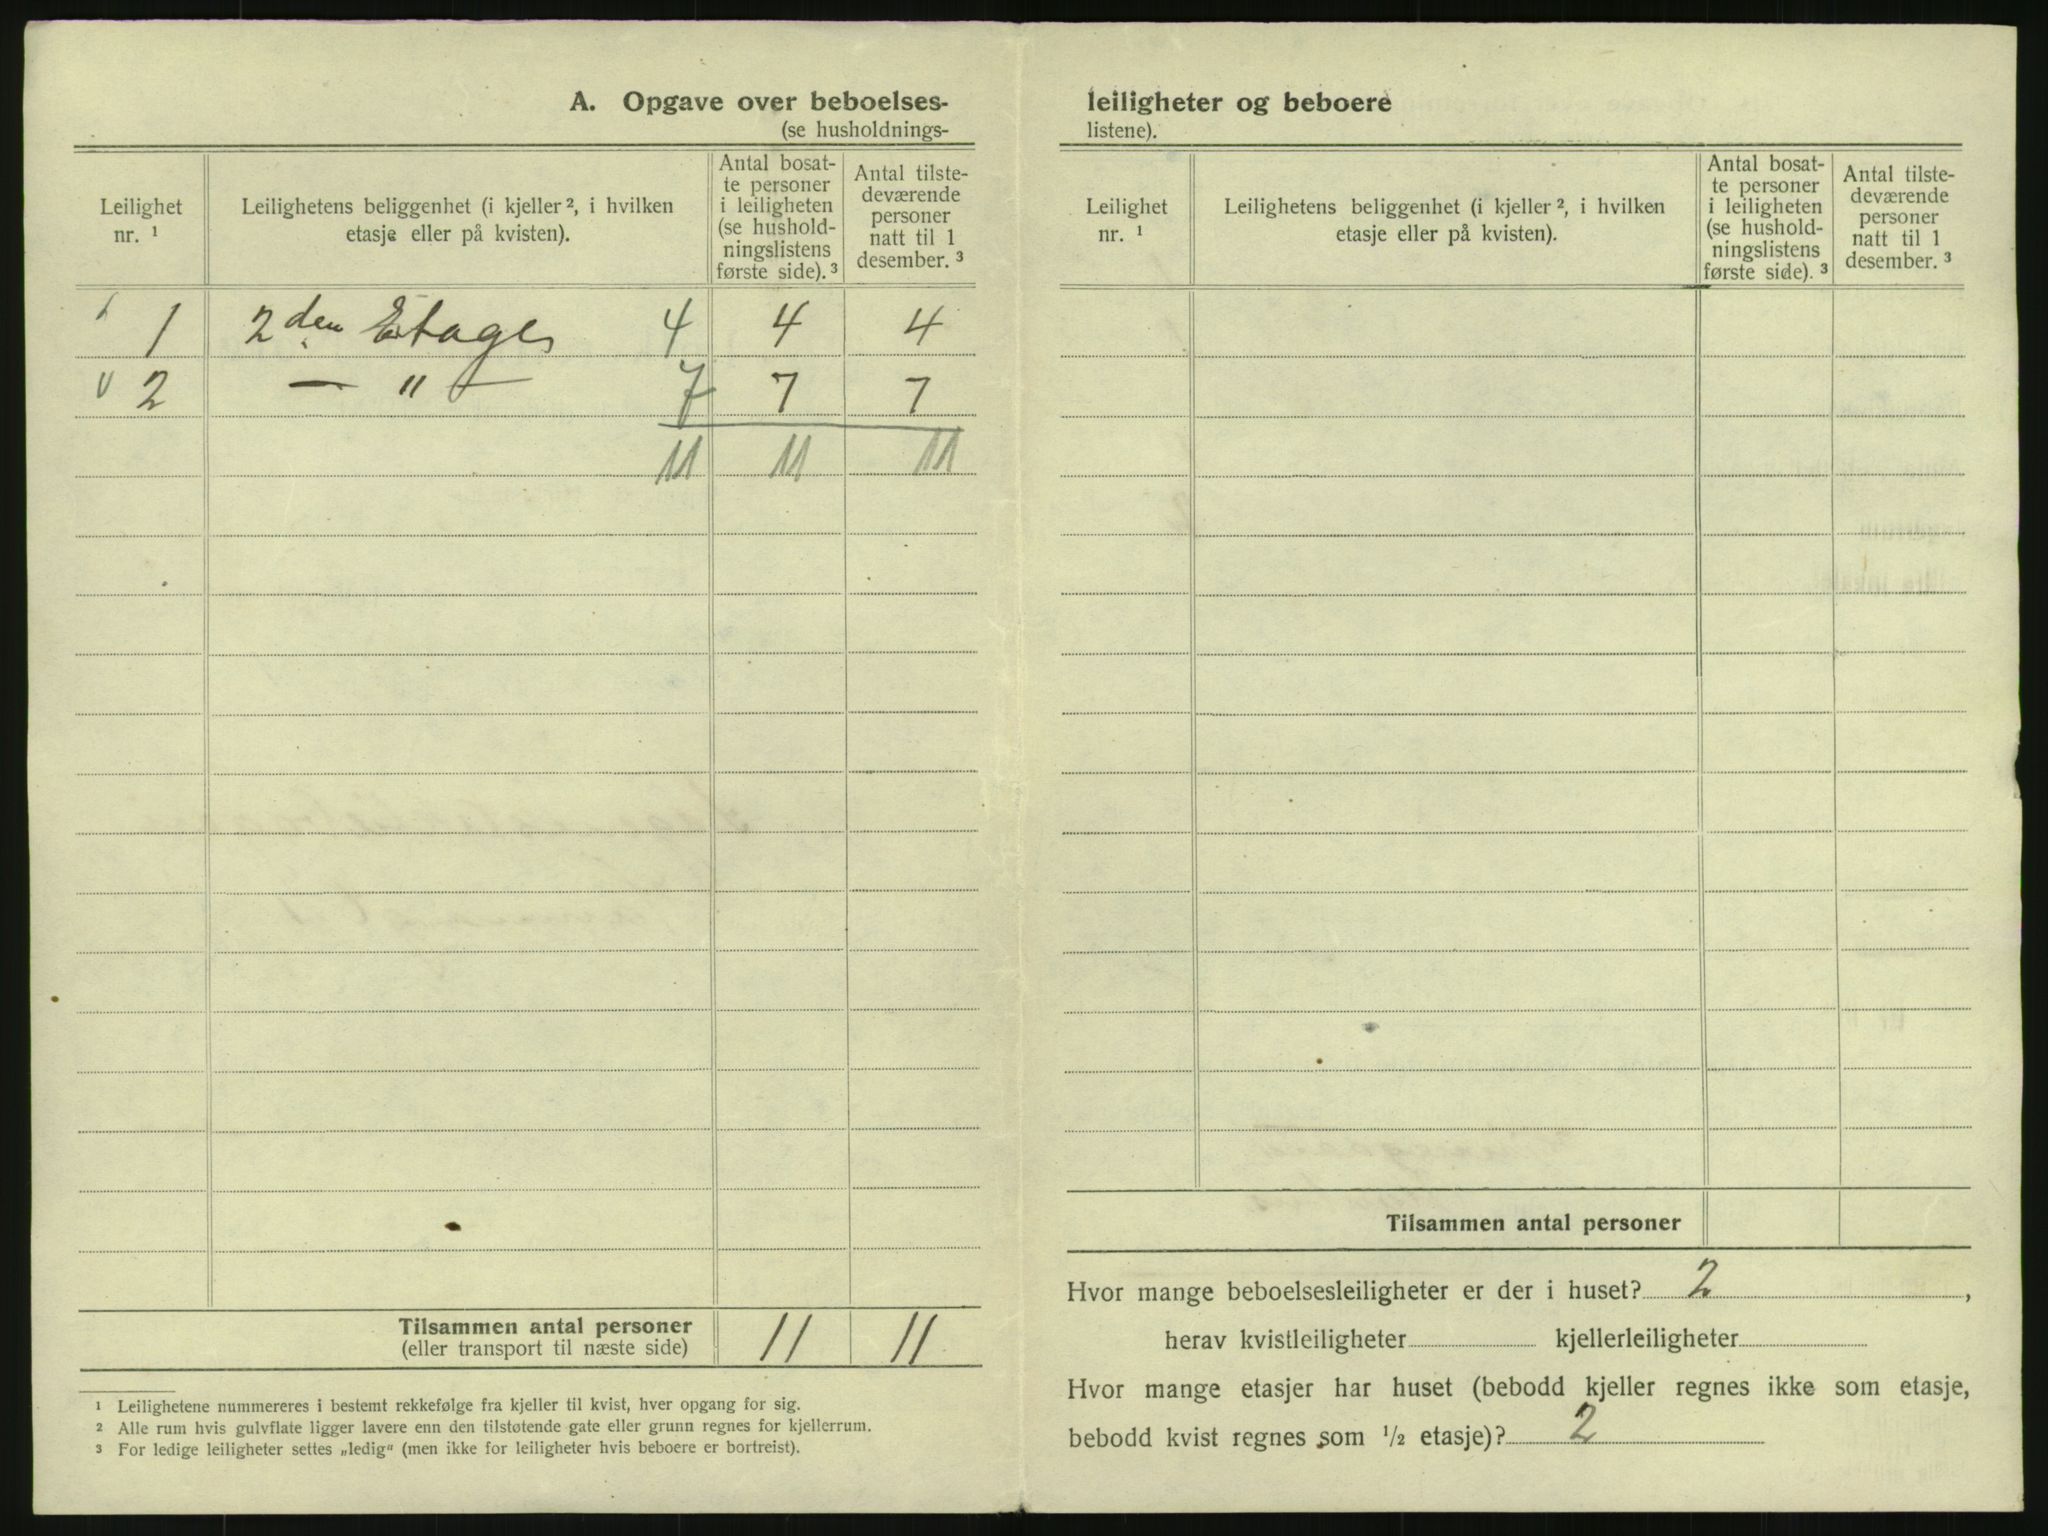 A. Opgave over beboelses-
(se husholdnings-
Leilighet
nr. ¹
Leilighetens beliggenhet (i kjeller ², i hvilken
etasje eller på kvisten).
Antal bosat-
te personer
i leiligheten
(se hushold-
ningslistens
første side). ³
Antal tilste-
deværende
personer
natt til 1
desember. ³
1 2den Etages 4 4 4
2 — " — 7 7 7
11 11 11
Tilsammen antal personer 11 11
(eller transport til næste side)
¹ Leilighetene nummereres i bestemt rekkefølge fra kjeller til kvist, hver opgang for sig.
² Alle rum hvis gulvflate ligger lavere enn den tilstøtende gate eller grunn regnes for kjellerrum.
³ For ledige leiligheter settes „ledig“ (men ikke for leiligheter hvis beboere er bortreist).
leiligheter og beboere
listene).
Leilighet
nr. ¹
Leilighetens beliggenhet (i kjeller ², i hvilken
etasje eller på kvisten).
Antal bosat-
te personer
i leiligheten
(se hushold-
ningslistens
første side). ³
Antal tilste-
deværende
personer
natt til 1
desember. ³
Tilsammen antal personer
Hvor mange beboelsesleiligheter er der i huset? 2,
herav kvistleiligheter kjellerleiligheter
Hvor mange etasjer har huset (bebodd kjeller regnes ikke som etasje,
bebodd kvist regnes som ½ etasje)? 2